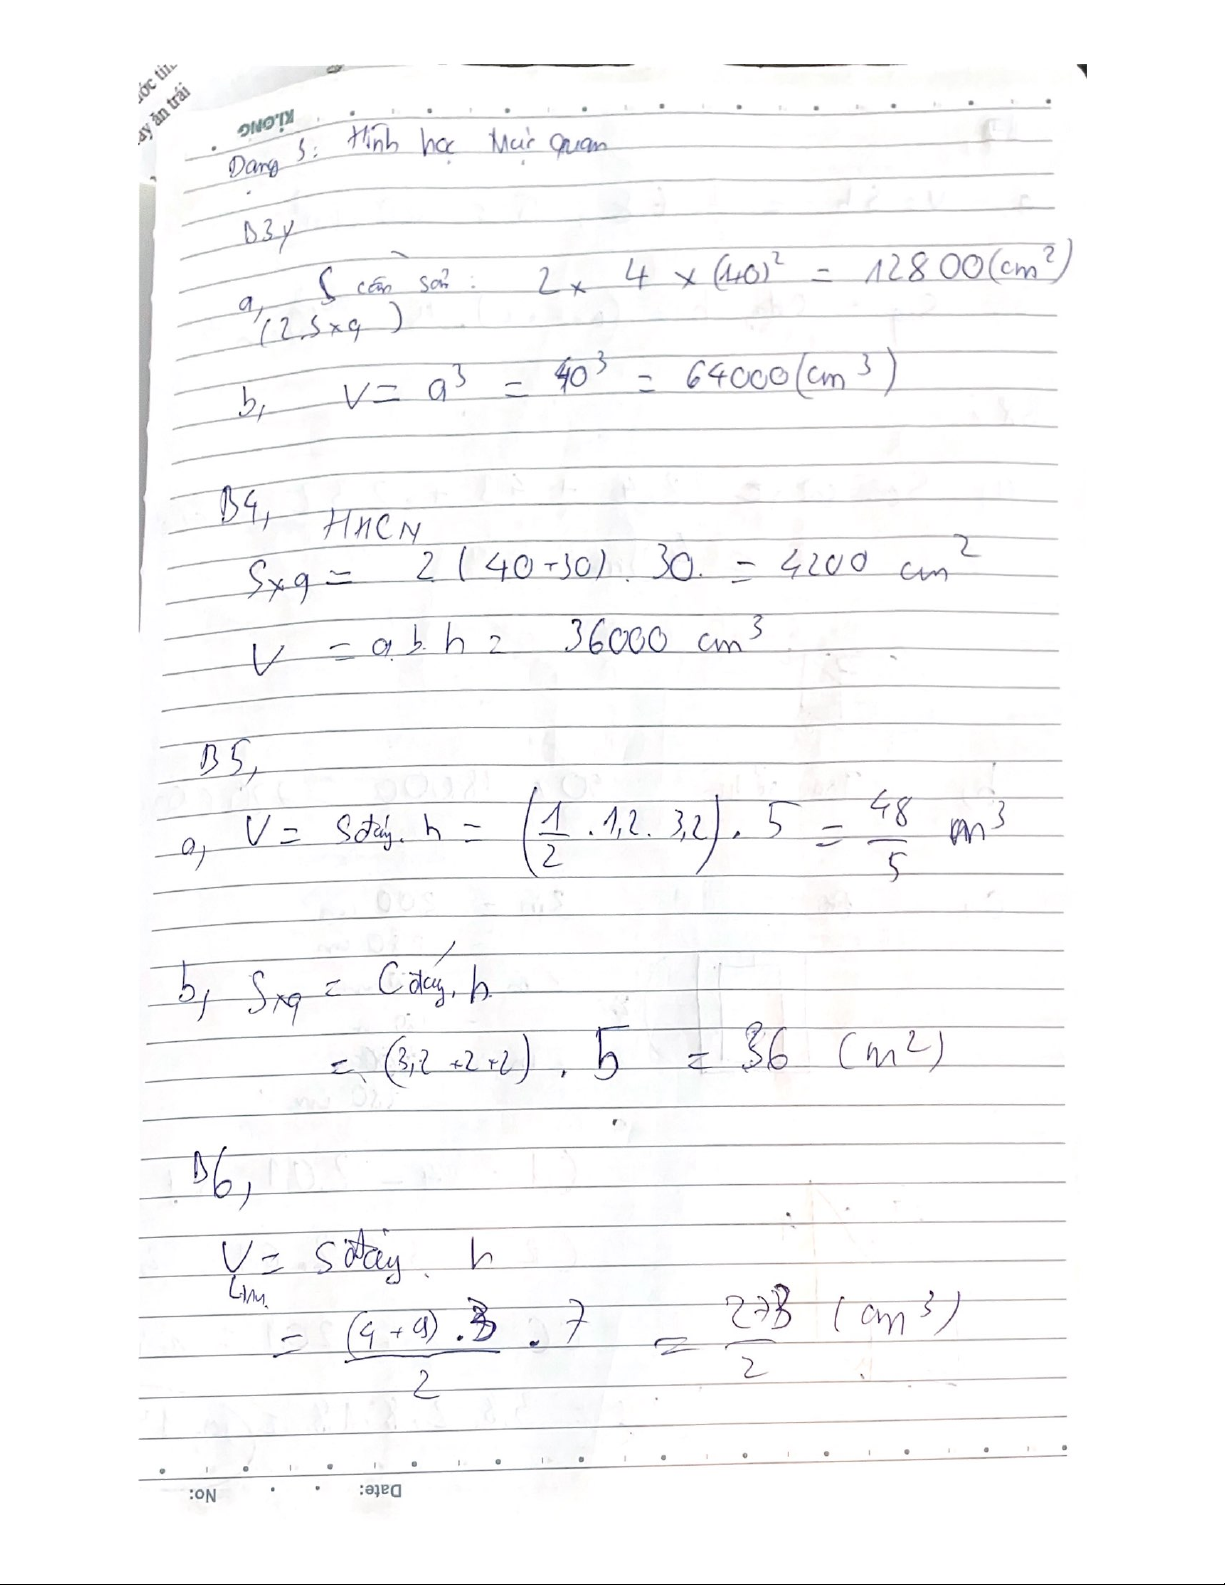 ước tín
ay ăn trái
KLONG
Dạng 3: Hình học trực quan
B3,
a, S cần sơn: 2 x 4 x (40)² = 12800 (cm²)
(2.Sxq)
b, V = a³ = 40³ = 64000 (cm³)
B4,
HHCN
Sxq = 2 (40+30). 30. = 4200 cm²
V = a.b.h = 36000 cm³
B5,
a, V = Sđáy. h = (1/2 . 1,2 . 3,2) . 5 = 48/5 m³
b, Sxq = Cđáy. h.
= (3,2 +2+2) . 5 = 36 (m²)
B6,
V = Sđáy . h
= (4+9).3/2 . 7 = 273/2 (cm³)
No:
Date: